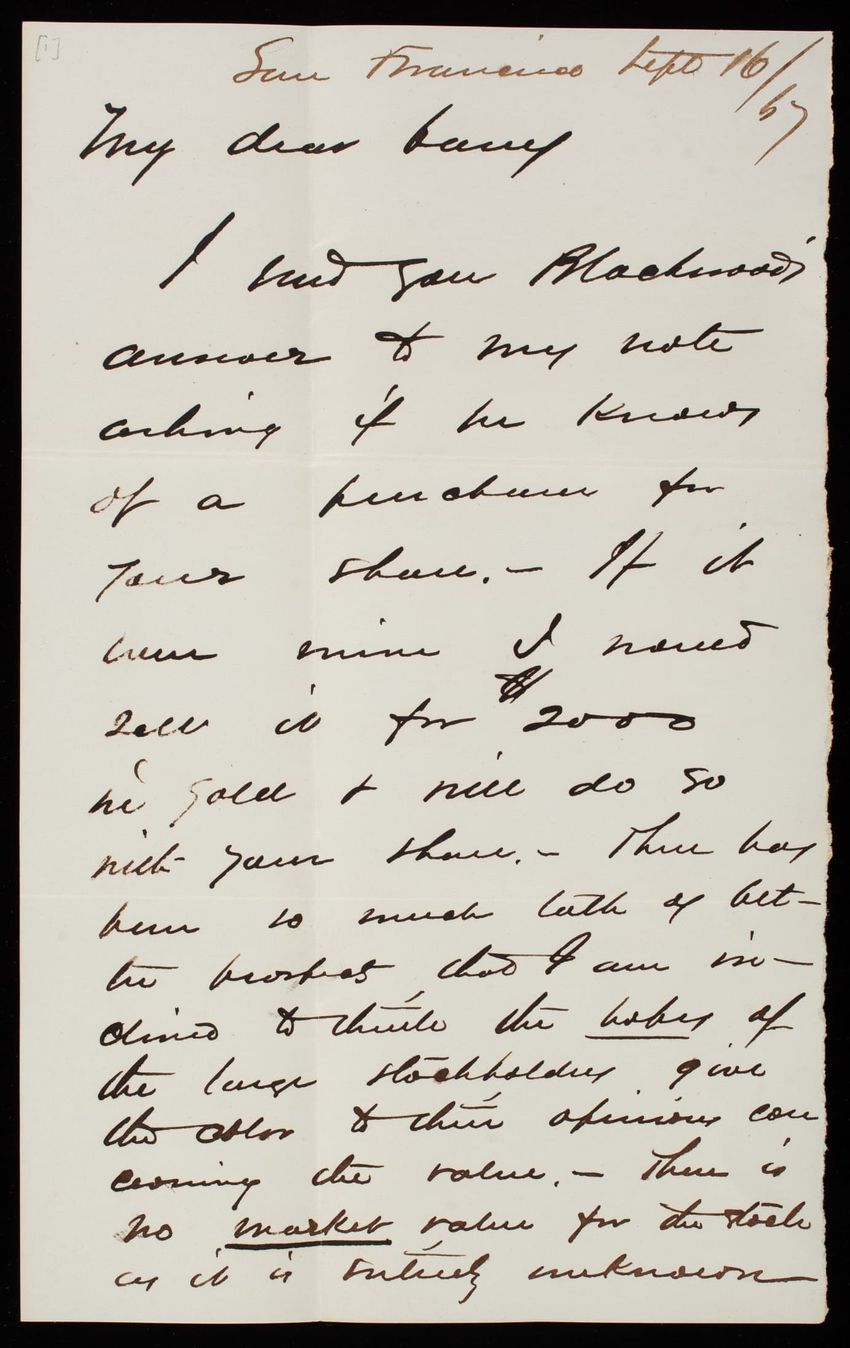 [1]
San Francisco Sept 16/67
My dear Casey
I send you Blackwood's
answer to my note
asking if he knows
of a purchaser for
your share. – If it
were mine I would
sell it for $2000
in gold & will do so
with your share. – There has
been so much talk of bet-
ter prospects, that I am in-
clined to think the hopes of
the large stockholders give
the color to their opinions con
cerning the value. – There is
no market value for the stock
as it is entirely unknown